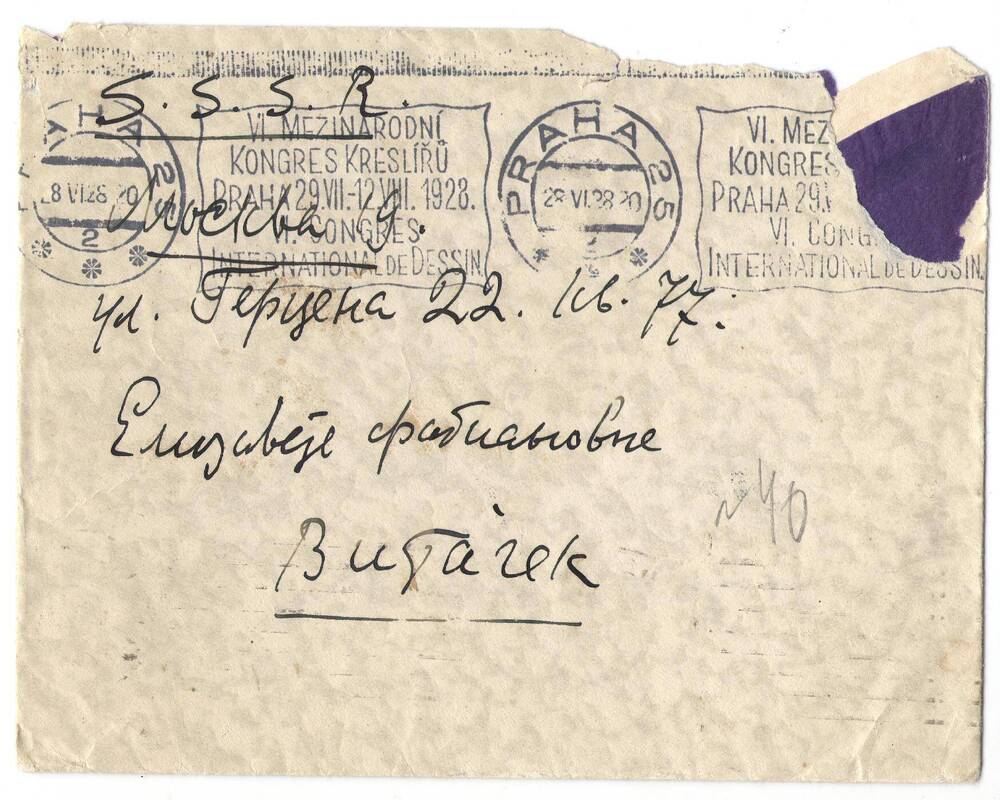 S. S. S. R.
PRAHA 25
28 VI.28 20
2
VI. MEZINÁRODNÍ
KONGRES KRESLÍŘŮ
PRAHA 29.VII.-12.VIII. 1928.
VI. CONGRES
INTERNATIONAL DE DESSIN.
PRAHA 25
28 VI.28 20
VI. MEZ
KONGRES
PRAHA 29.V
VI. CONG
INTERNATIONAL DE DESSIN.
Москва 9.
ул. Герцена 22. кв. 77.
Елизавете Фабиановне
Витачек
№ 40